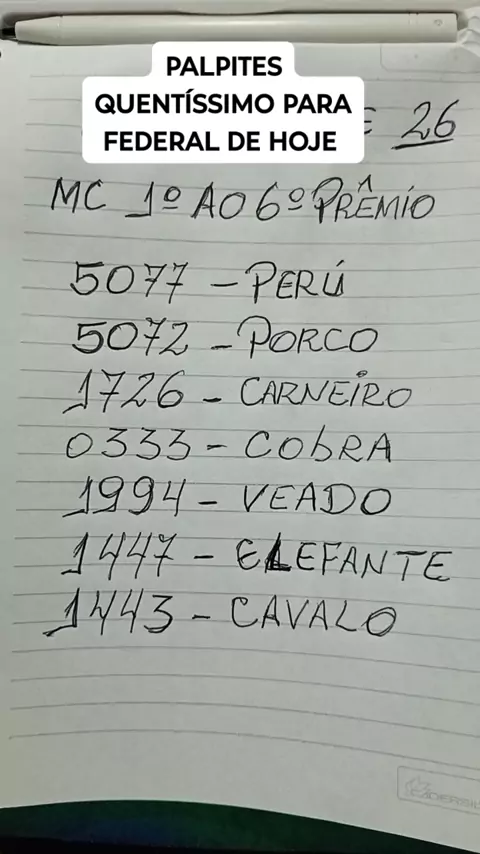 PALPITES
QUENTÍSSIMO PARA
FEDERAL DE HOJE
E 26
MC 1º AO 6º PRÊMIO
5077 - PERÚ
5072 - PORCO
1726 - CARNEIRO
0333 - CObRA
1994 - VEADO
1447 - ELEFANTE
1443 - CAVALO